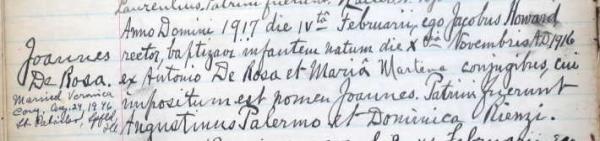 Laurentius. Patrini fuerunt
Anno Domini 1917 die IVta Februarii, ego Jacobus Howard
Joannes
De Rosa.
Married Veronica
Aug. 24, 1946
St. Patricks,
rector, baptizavi infantem natum die Xma Novembris A.D. 1916
ex Antonio De Rosa et Mariâ Martena conjugibus, cui
impositum est nomen Joannes. Patrini fuerunt
Augustinus Palermo et Dominica Rienzi.